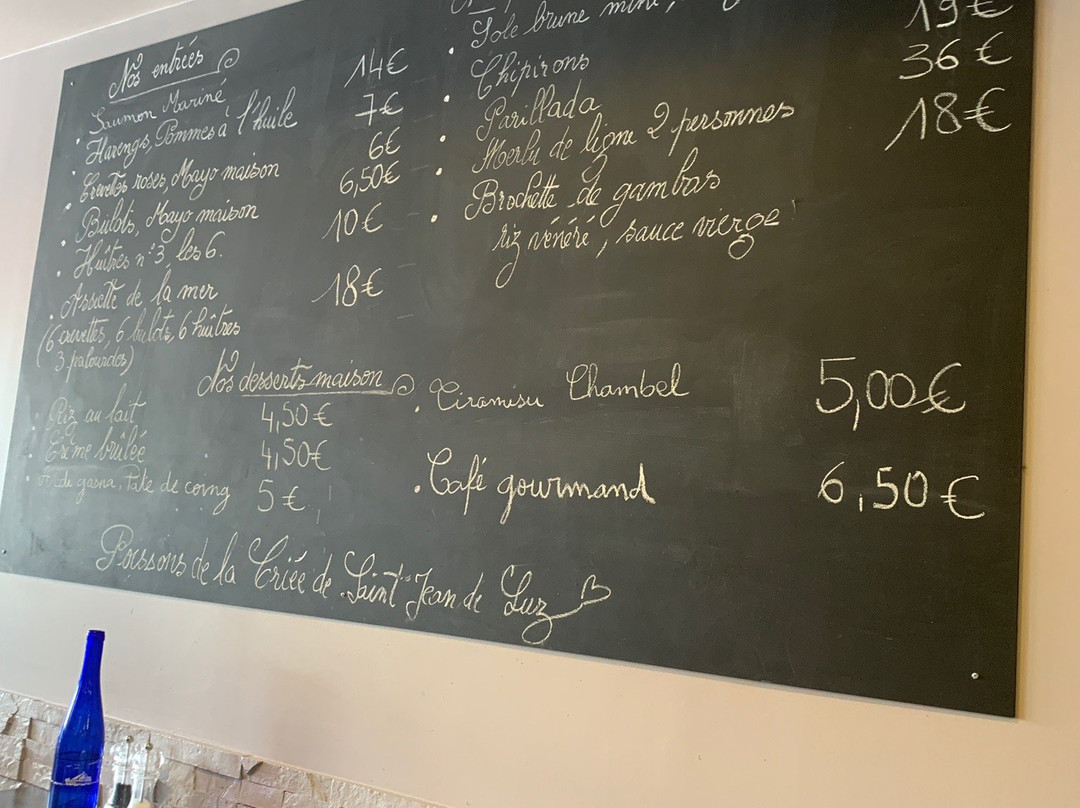 Nos entrées
Saumon Mariné 14€
Harengs, Pommes à l'huile 7€
Crevettes roses, Mayo maison 6€
Bulots, Mayo maison 6,50€
Huîtres n°3, les 6. 10€
Assiette de la mer 18€
(6 crevettes, 6 bulots, 6 huîtres
3 palourdes)
Sole brune mini,
Chipirons 19€
Parillada 36€
Merlu de ligne 2 personnes 18€
Brochette de gambas
riz vénéré, sauce vierge
Nos desserts maison
Riz au lait 4,50€
Crème brûlée 4,50€
gasna, Pate de coing 5€
Tiramisu Chambel 5,00€
Café gourmand 6,50€
Poissons de la Criée de Saint Jean de Luz